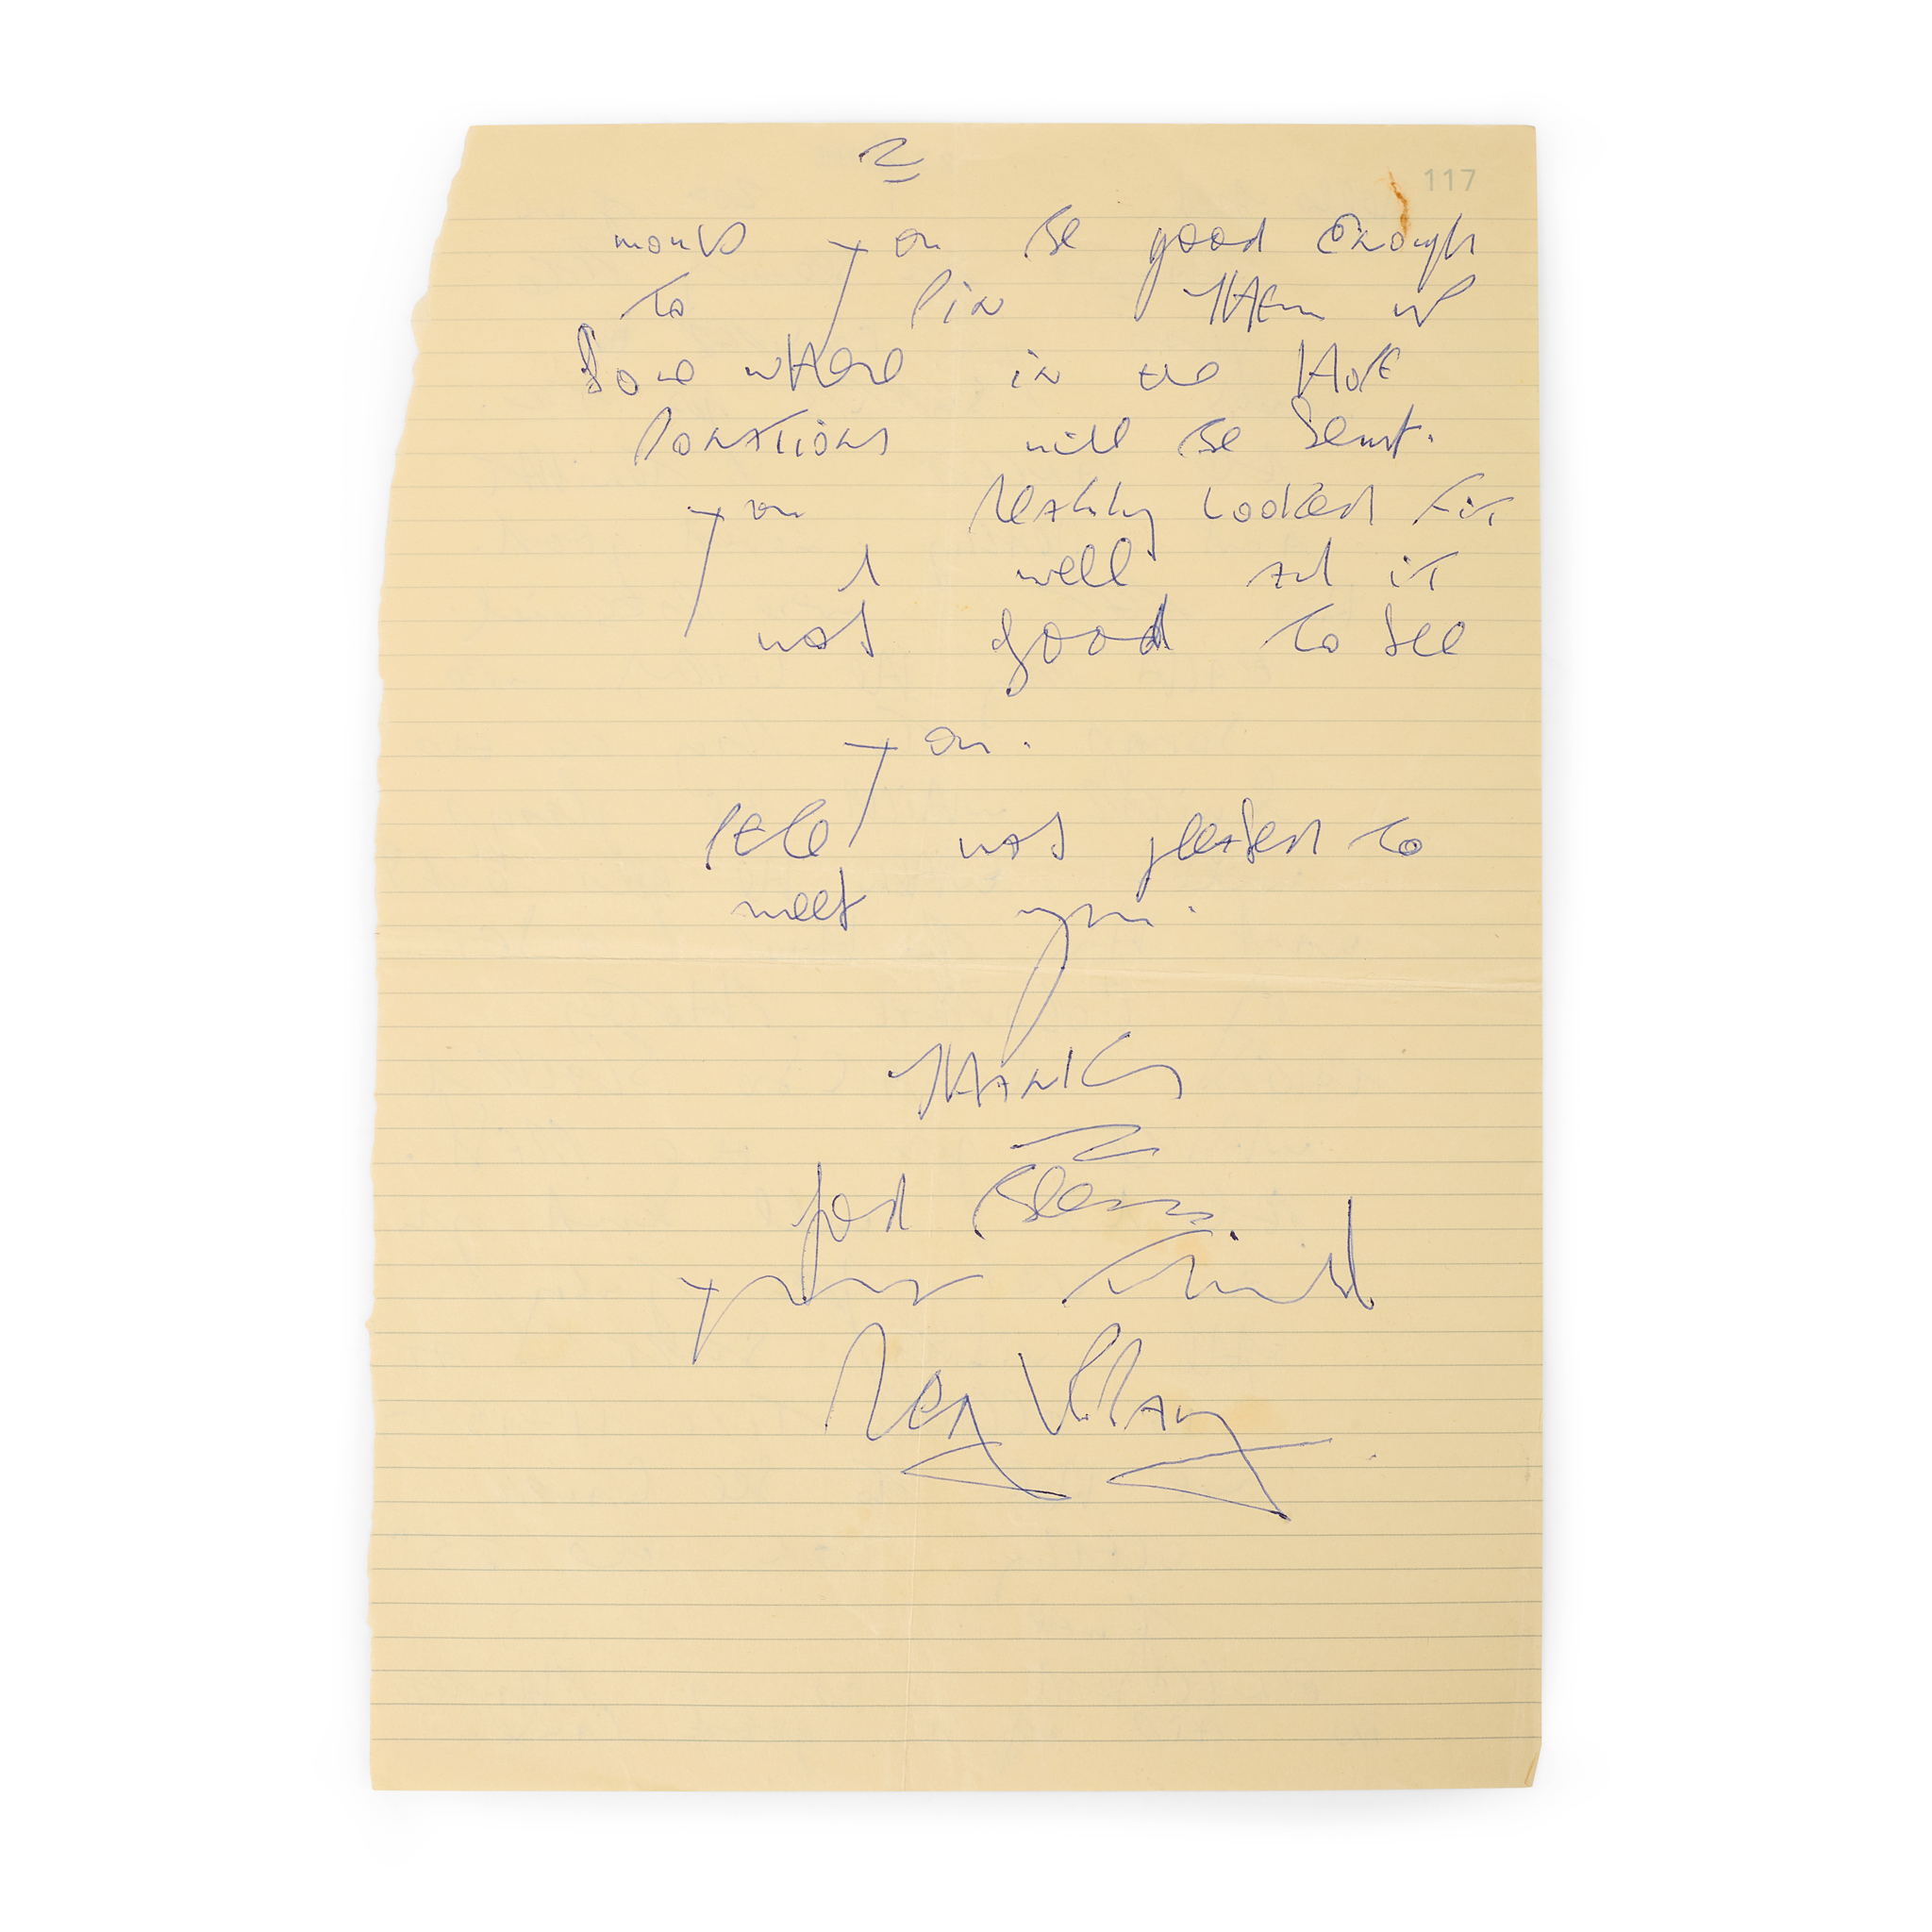 2
117
would you be good enough
to pin them up
Somewhere in the Hope
Donations will be sent.
you really looked fit
& well and it
was good to see
you.
Pete was pleased to
meet you.
Thanks
God Bless.
your friend
Reg Kray